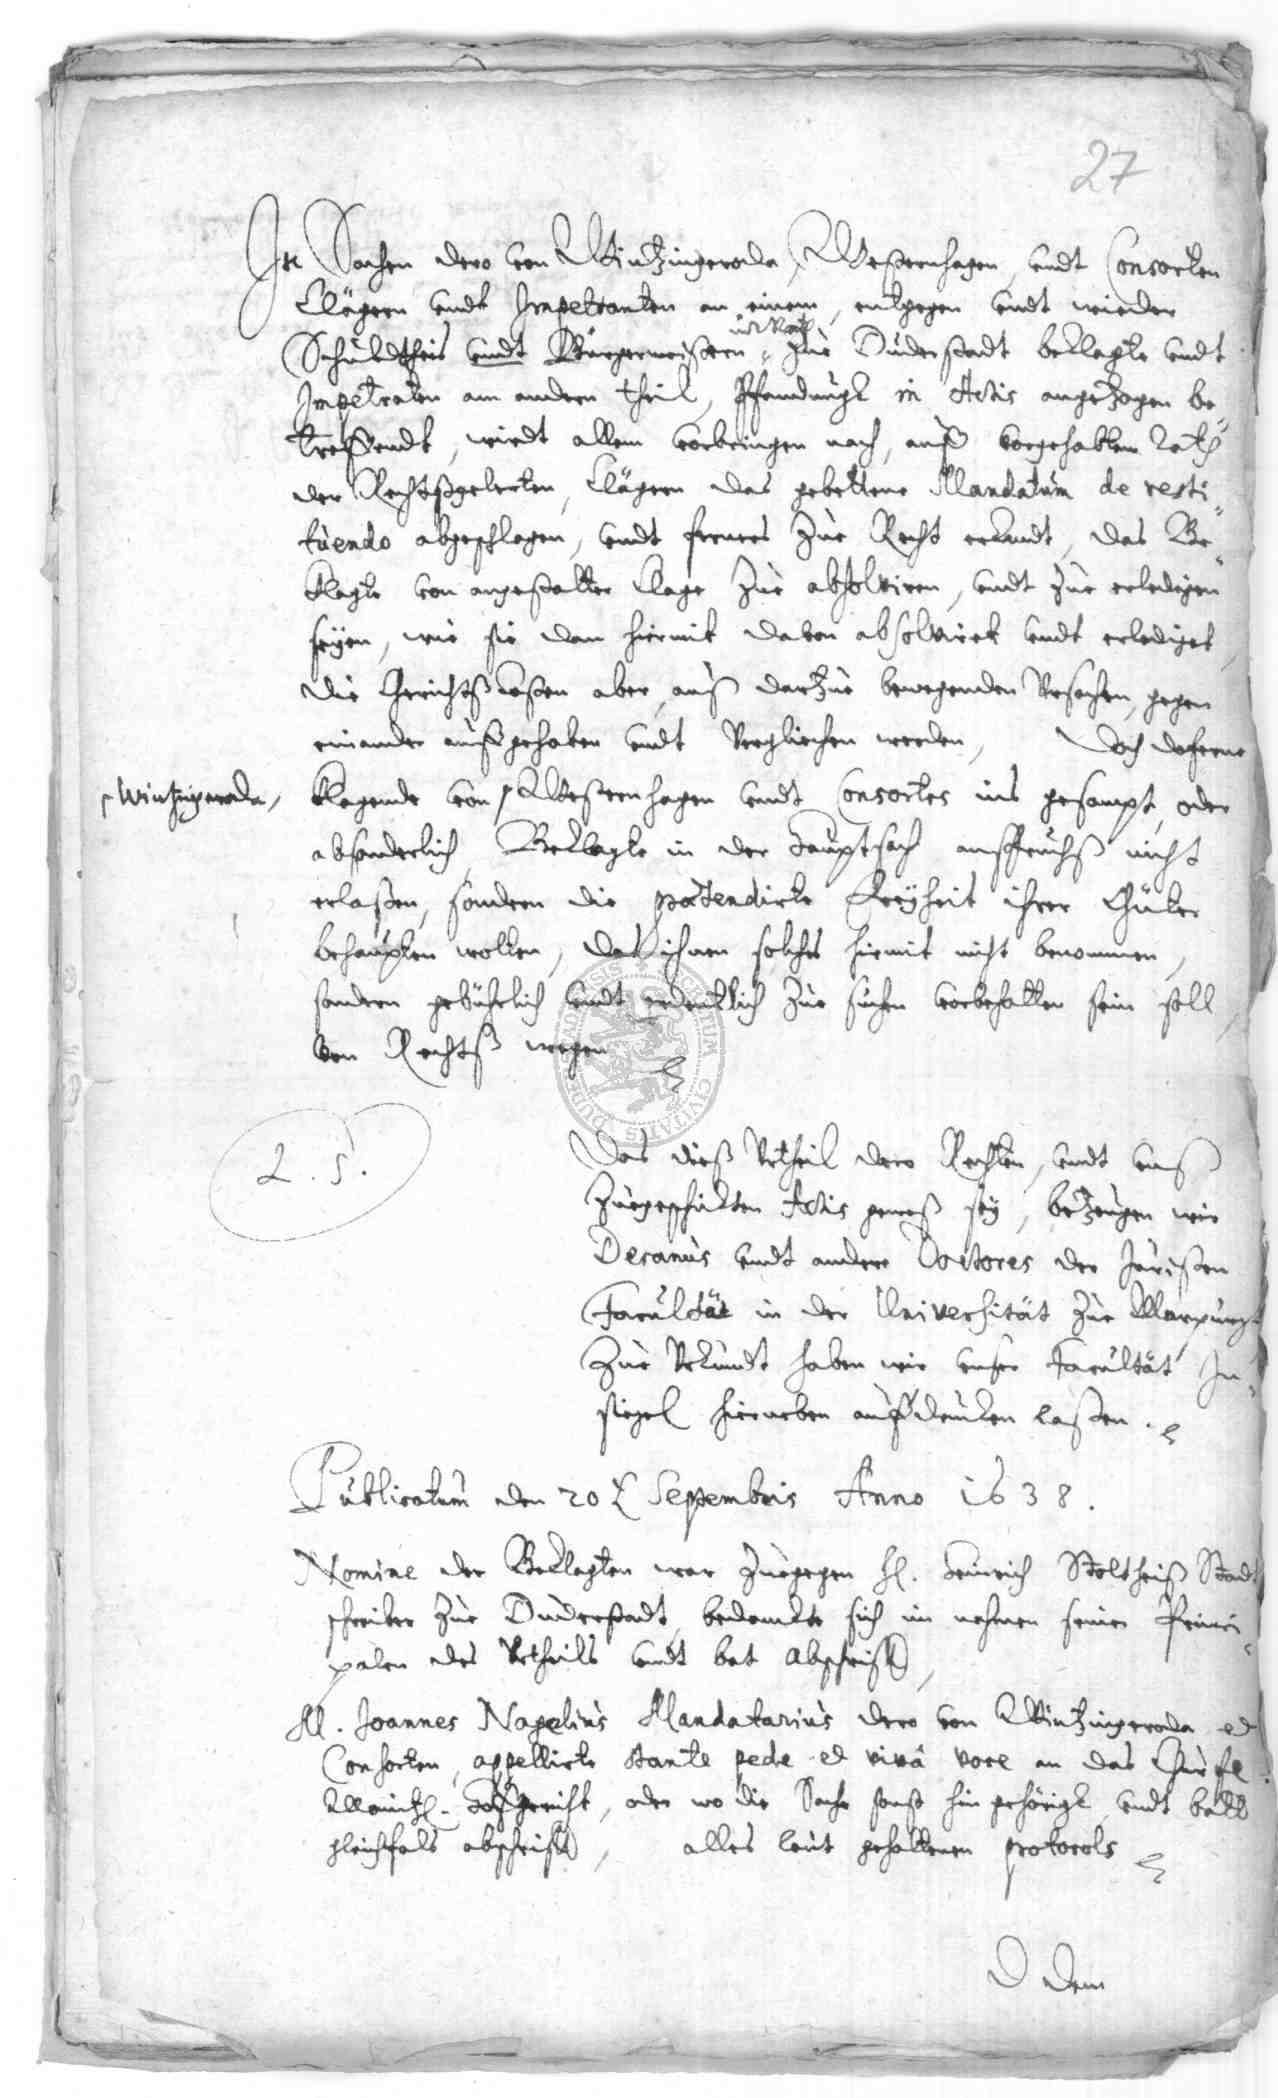 27
In Sachen dero von Wintzingeroda, Westernhagen undt Consorten
Clägern undt Impetranten an einem, entgegen undt wieder
Schuldtheis undt Bürgermeistern zue Duderstadt beklagte undt
Impetraten am andern theil, Pfandungk in Actis angezogen be-
treffendt, wirdt allem vorbringen nach, auff vorgehabten Rath
der Rechtßgelerten, Clägern das gebettene Mandatum de resti-
tuendo abgeschlagen, undt ferners zue Recht erkandt, das Be-
klagte von angestalter Clage zue absolviren, undt zue erledigen
seyen, wie sie dan hiermit davon absolvirt undt erlediget,
die Gerichtßcosten aber, auß darzue bewegenden Ursachen, gegen
einander auffgehaben undt verglichen werden, Doch doferne
Wintzingeroda,
klagende von Westernhagen undt Consortes ins gesampt, oder
absonderlich, Beklagte in der Hauptsach anspruchß nicht
erlaßen, sondern die prætendirte Freyheit ihrer Güter
behaupten wolten, das ihnen solches hiermit nicht benommen,
sondern gebührlich undt ordentlich zue suchen vorbehalten sein soll
von Rechtß wegen
L. S.
Das dieß Urtheil dero Rechten, undt unß
zuegeschickten Actis gemeß sey, bezeugen wir
Decanus undt andere Doctores der Juristen
Facultät in der Universität zue Marpurg,
Zue Urkundt haben wir unser Facultät In-
siegel hierneben auffdrucken laßen.
Publicatum den 20 Septembris Anno 1638.
Nomine der Beklagten war zuegegen H. Heinrich Stoltheiß Stadt
schreiber zue Duderstadt, bedanckte sich im nahmen seiner Princi-
palen des Urtheils undt bat Abschrifft,
M. Joannes Nagelius Mandatarius dero von Wintzingeroda et
Consorten, appellirte stante pede et vivâ voce an das Churfl
Maintz. Hoffgericht, oder wo die Sache sonst hin gehörigk, undt batt
gleichfals abschrifft, alles laut gehaltenen protocols
Dem